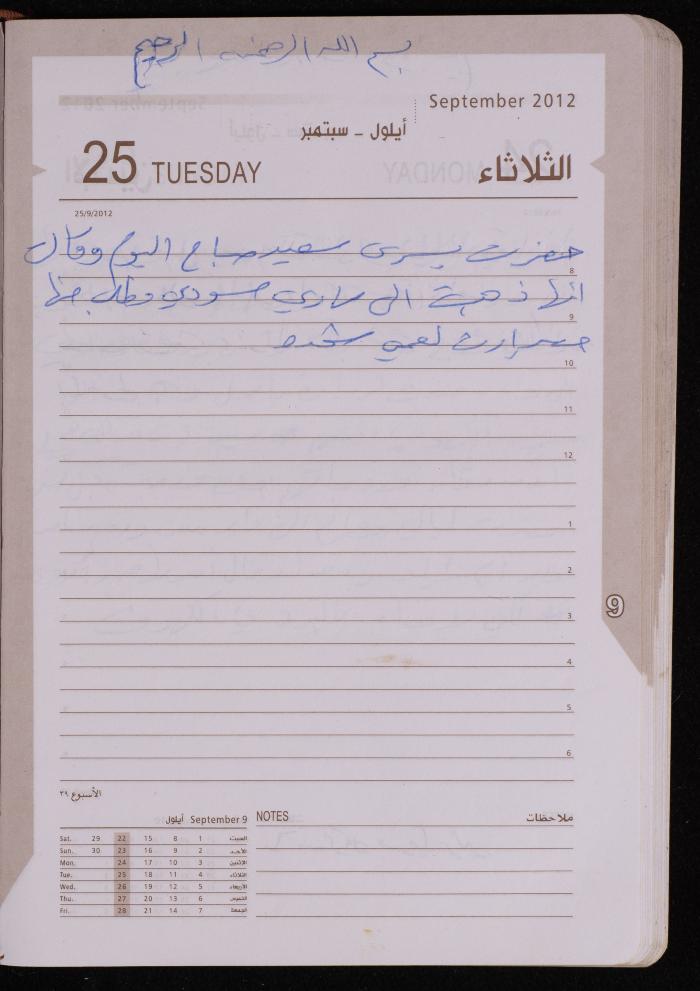 بسم الله الرحمن الرحيم
September 2012
أيلول - سبتمبر
25 TUESDAY
الثلاثاء
25/9/2012
حضرت يسرى سعيد صباح اليوم وقال
8
انها ذهبت الى
9
لعمي
10
11
12
1
2
3
9
4
5
6
الأسبوع ٣٩
September 9 أيلول
Sat. 29 22 15 8 1 السبت
Sun. 30 23 16 9 2 الأحد
Mon. 24 17 10 3 الإثنين
Tue. 25 18 11 4 الثلاثاء
Wed. 26 19 12 5 الأربعاء
Thu. 27 20 13 6 الخميس
Fri. 28 21 14 7 الجمعة
NOTES ملاحظات